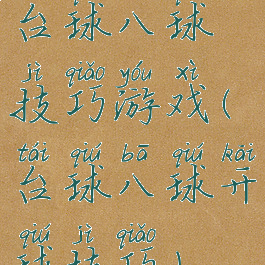 台球八球
jì qiǎo yóu xì
技巧游戏(
tái qiú bā qiú kāi
台球八球开
qiú jì qiǎo
球技巧)